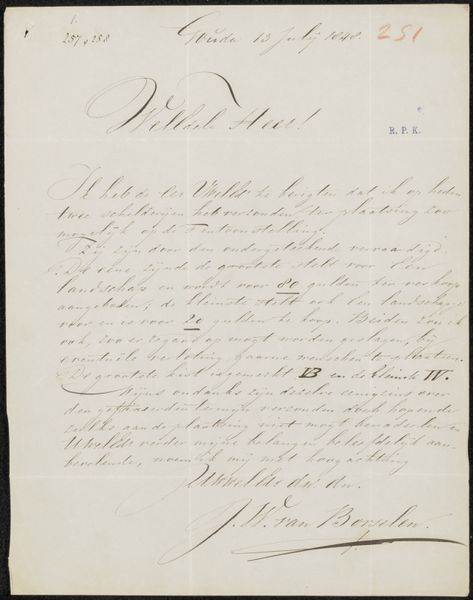 257 & 258
Gouda 13 July 1848.
251
WelEdele Heer!
R. P. K.
Ik heb de Eer UwEd. te berigten dat ik op heden
twee schilderijen heb verzonden ter plaatsing zoo
mogelijk op de Tentoonstelling.
Zij zijn door den ondergeteekende vervaardigd.
De eene zijnde de grootste stelt voor Een
landschap en wordt voor 80 gulden ten verkoop
aangeboden; de kleinste stelt ook een landschap
voor en is voor 20 gulden te koop. Beiden zou ik
ook, zoo er op mogt worden geslagen, bij
eventuele verloting gaarne wenschen te plaatsen.
De grootste kist is gemerkt VB en de kleinste IV.
Mijns ondanks zijn dezelve eenigzins over
den termijn verzonden doch hopende
zulks aan de plaatsing niet mogt benadeelen en
UwEd. verder mijne belangen beleefdelijk aan-
bevelende, noem ik mij met hoogachting
UwEd. dw. dn.
J. W. van Borselen.